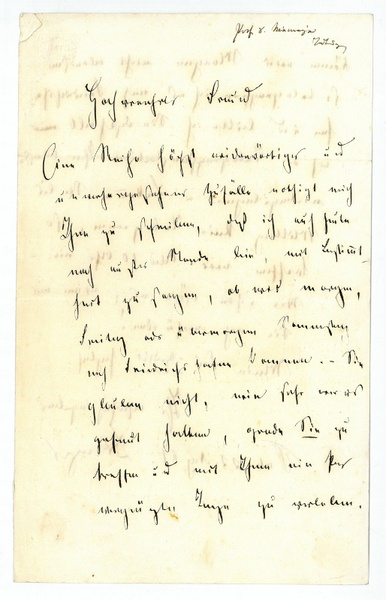 Prof v. Niemeyer
Hochverehrter Freund
Eine Reihe höchst widerwärtiger und
unvorhergesehener Zufälle nöthigt mich
Ihnen zu schreiben, daß ich auch heute
noch außer Stande bin, mit Bestimmt-
heit zu sagen, ob wir morgen,
Freitag oder übermorgen Sonnabend
nach Friedrichshafen kommen. – Sie
glauben nicht, wie sehr wir uns
gefreut hatten, gerade Sie zu
treffen und mit Ihnen ein Paar
vergnügte Tage zu verleben.